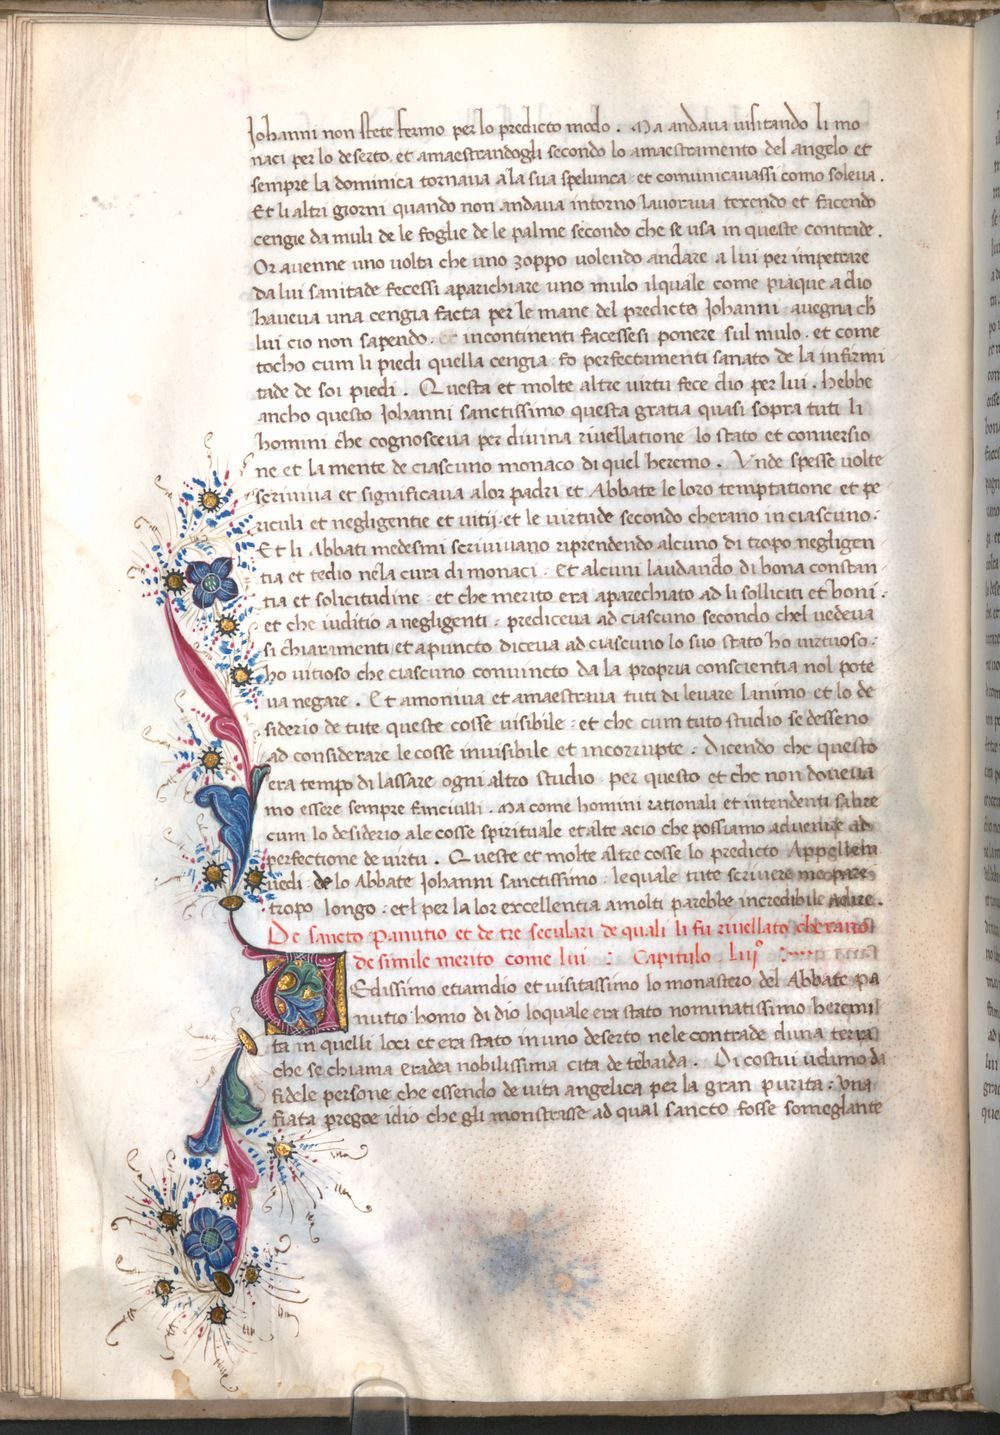 Johanni non stete fermo per lo predicto modo . Ma andaua uisitando li mo
naci per lo deserto et amaestrandogli secondo lo amaestramento del angelo et
sempre la dominica tornaua a la sua spelunca et comunicauassi como soleua .
Et li altri giorni quando non andaua intorno lauoraua texendo et facendo
cengie da muli de le foglie de le palme secondo che se usa in queste contrade .
Or auenne uno uolta che uno zoppo uolendo andare a lui per impetrare
da lui sanitade fecessi aparichiare uno mulo il quale come piaque a dio
haueua una cengia facta per le mane del predicto Johanni auegna ch̄
lui cio non sapendo . et incontinenti facessesi ponere sul mulo . et come
tocho cum li piedi quella cengia fo perfectamenti sanato de la infirmi
tade de soi piedi . Questa et molte altre uirtu fece dio per lui . hebbe
ancho questo Johanni sanctissimo questa gratia quasi sopra tuti li
homini che cognosceua per diuina riuellatione lo stato et conuersio
ne et la mente de ciascuno monaco di quel heremo . Unde spesse uolte
scriuiua et significaua alor padri et Abbate le loro temptatione et pe
riculi et negligentie et uitij et le uirtude secondo cherano in ciascuno :
Et li Abbati medesmi scriuiuano riprendendo alcuno di tropo negligen
tia et tedio nela cura di monaci . Et alcuni laudando di bona constan
tia et solicitudine : et che merito era aparechiato ad li solliciti et boni .
et che iuditio a negligenti : prediceua ad ciascuno secondo chel uedeua
si chiaramenti et apuncto diceua ad ciascuno lo suo stato ho uirtuoso :
ho uitioso che ciascuno conuincto da la propria conscientia nol pote
ua negare . Et amoniua et amaestraua tuti di leuare lanimo et lo de
siderio de tute queste cosse uisibile : et che cum tuto studio se desseno
ad considerare le cosse inuisibile et incorrupte . Dicendo che questo
era tempo di lassare ogni altro studio per questo et che non doueua
mo essere sempre fanciulli . Ma come homini rationali et intendenti salire
cum lo desiderio ale cosse spirituale et alte acio che possiamo aduenire ad
perfectione de uirtu . Queste et molte altre cosse lo predicto Appellen
uedi de lo Abbate Johanni sanctissimo : le quale tute scriuere me pare
tropo longo : et per la lor excellentia a molti parebbe incredibile adire .
De sancto Panutio et de tre seculari de quali li fu riuellato cherano
de simile merito come lui : Capitulo . liijº
Vedissimo etiamdio et uisitassimo lo monastero del Abbate pa
nutio homo di dio loquale era stato nominatissimo heremi
ta in quelli loci et era stato in uno deserto nele contrade duna terra
che se chiama eradea nobilissima cita de tebaida . Di costui udimo da
fidele persone che essendo de uita angelica per la gran purita : Una
fiata pregoe idio che gli monstrasse ad qual sancto fosse someglante